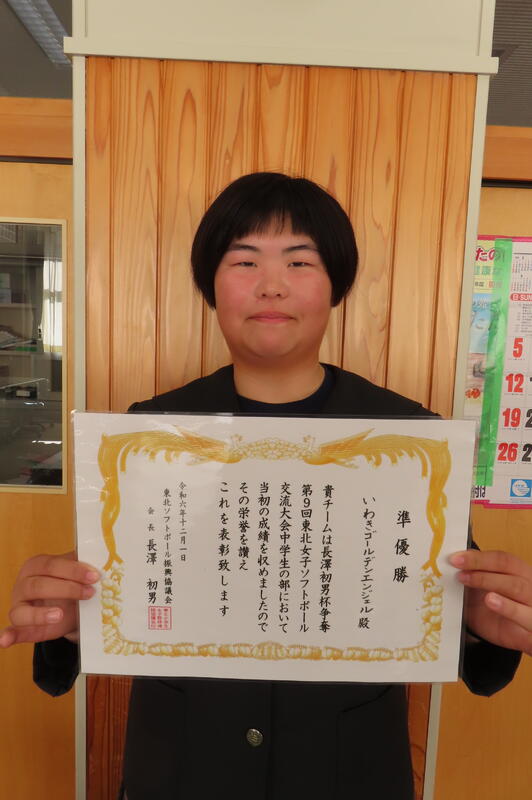 準優勝
いわきゴールデンエンジェル殿
貴チームは長澤初男杯争奪
第9回東北女子ソフトボール
交流大会中学生の部において
当初の成績を収めましたので
その栄誉を讃え
これを表彰致します
令和六年十二月一日
東北ソフトボール振興協議会
会長 長澤 初男
たの
健康な
日 SUN
5
12
19
26